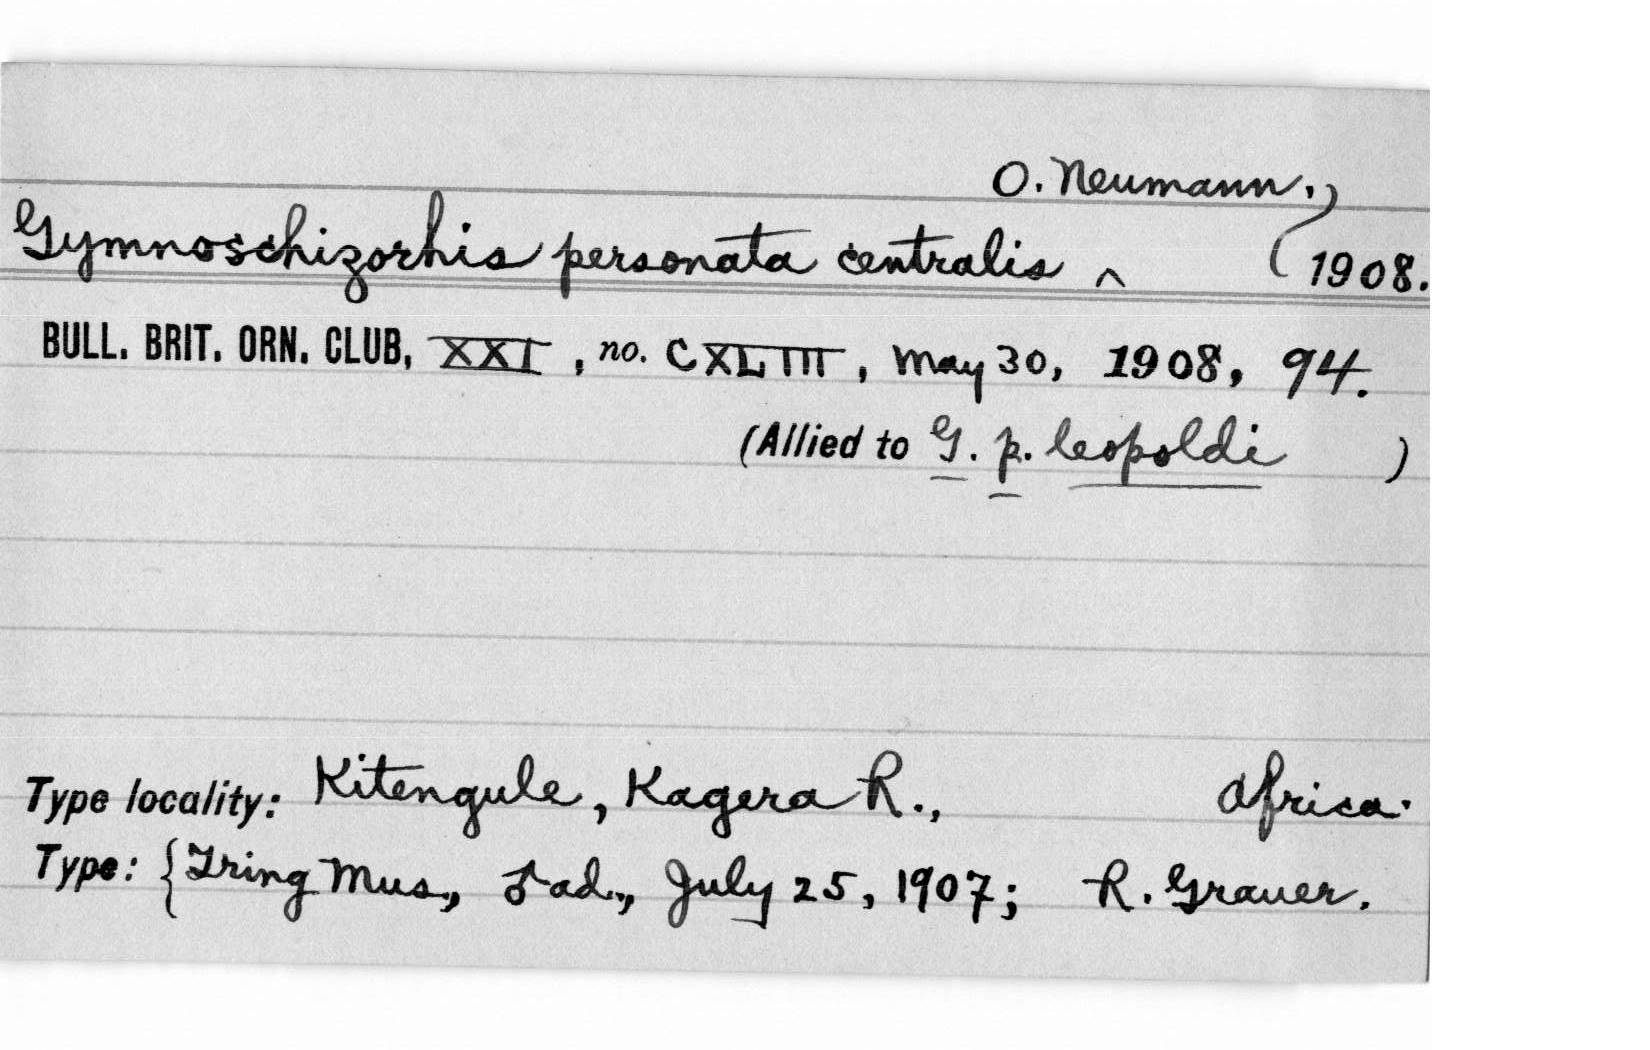 O. Neumann.,
Gymnoschizorhis personata centralis ^ (1908.
BULL. BRIT. ORN. CLUB, XXI, no. CXLIII, May 30, 1908, 94.
(Allied to G. p. leopoldi )
Type locality: Kitengule, Kagera R., Africa.
Type: {Tring Mus., ♂ ad., July 25, 1907; R. Grauer.